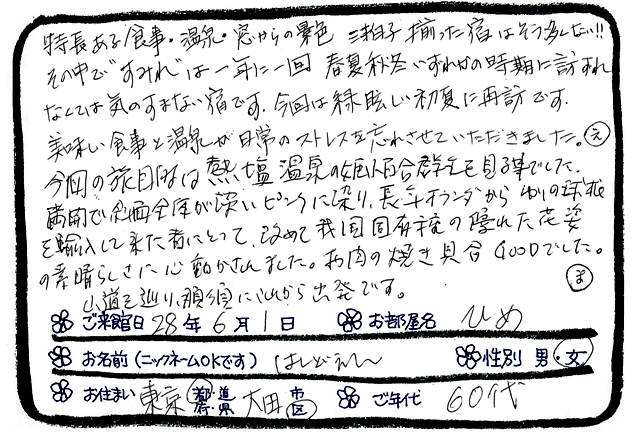 特長ある食事・温泉・窓からの景色 三拍子揃った宿はそう多しない!!
その中で"すみれ"は一年に一回 春夏秋冬いずれかの時期に訪れ
なくては気のすまない宿です。今回は緑眩しい初夏に再訪です。
美味しい食事と温泉が日常のストレスを忘れさせていただきました。 え
今回の旅目的は熱塩温泉の姫小百合群生を見る事でした。
満開で斜面全体が淡いピンクに染り、長年オランダから ゆりの球根
を輸入して来た者にとって、改めて我国固有種の隠れた花姿
の素晴らしさに心動かされました。お肉の焼き具合 GOODでした。
山道を巡り、 これから出発です。 ま
ご来館日 28年 6月 1日 お部屋名 ひめ
お名前(ニックネームOKです) 性別 男・女
お住まい 東京 都・道・府・県 大田 市区 ご年代 60代